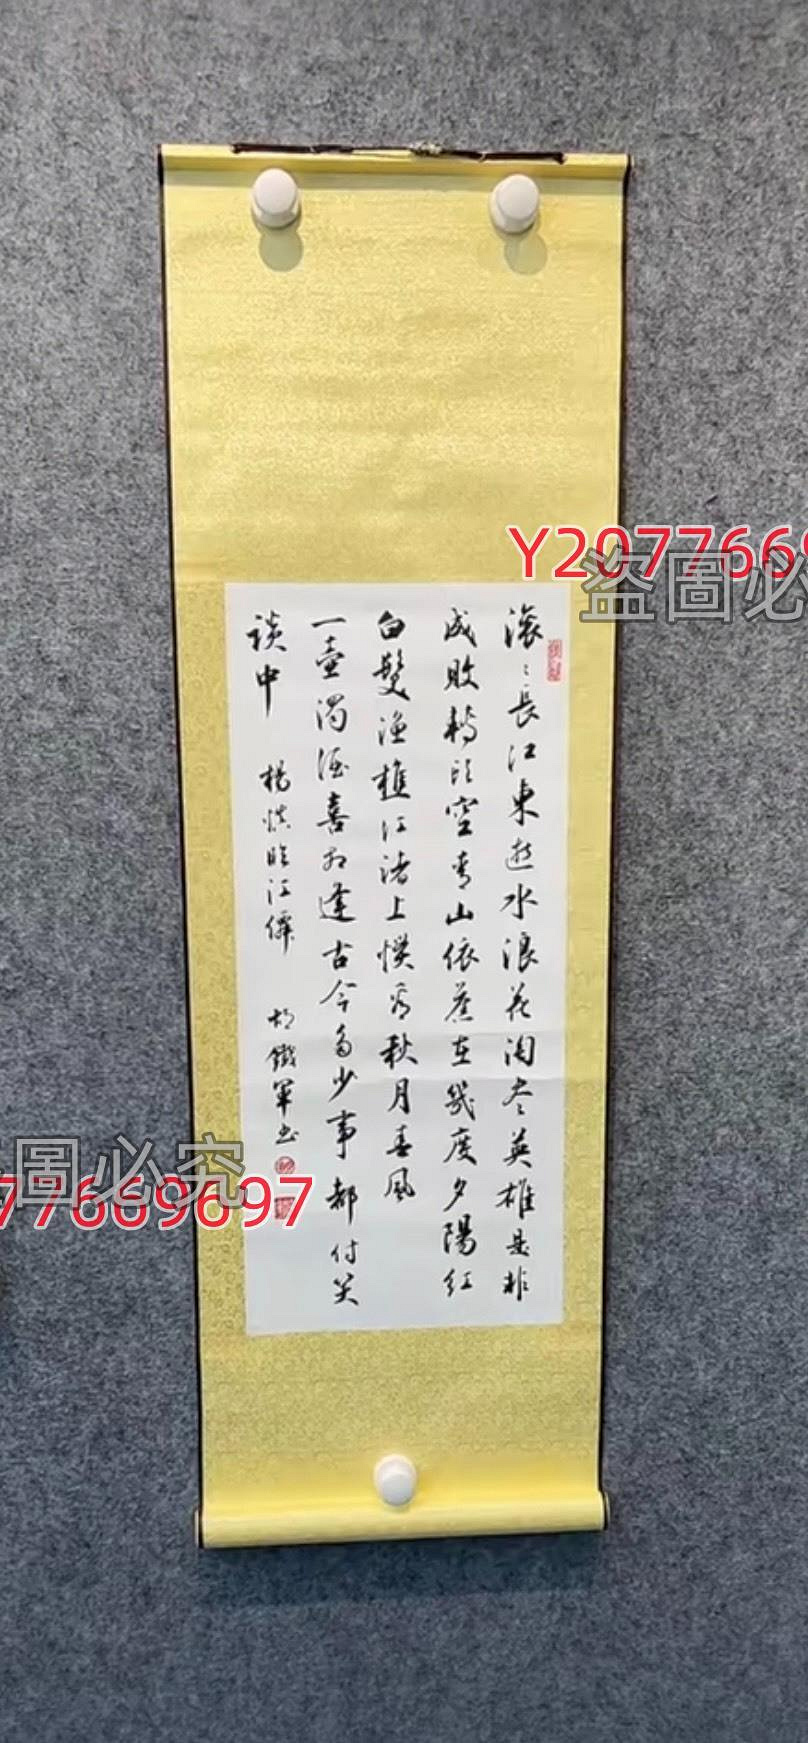 滚〻長江東逝水浪花淘尽英雄是非
成敗轉頭空青山依舊在幾度夕陽紅
白髮漁樵江渚上慣看秋月春風
一壺濁酒喜相逢古今多少事都付笑
談中
楊慎臨江僊
胡鐵軍书
Y2077669
盗圖必
圖必究
77669697